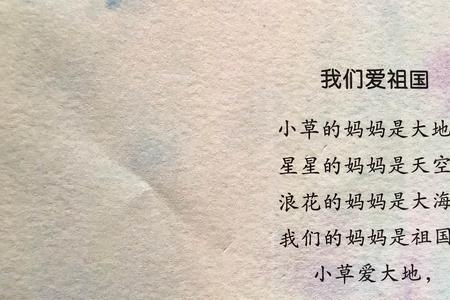 我们爱祖国
小草的妈妈是大地
星星的妈妈是天空
浪花的妈妈是大海
我们的妈妈是祖国
小草爱大地，